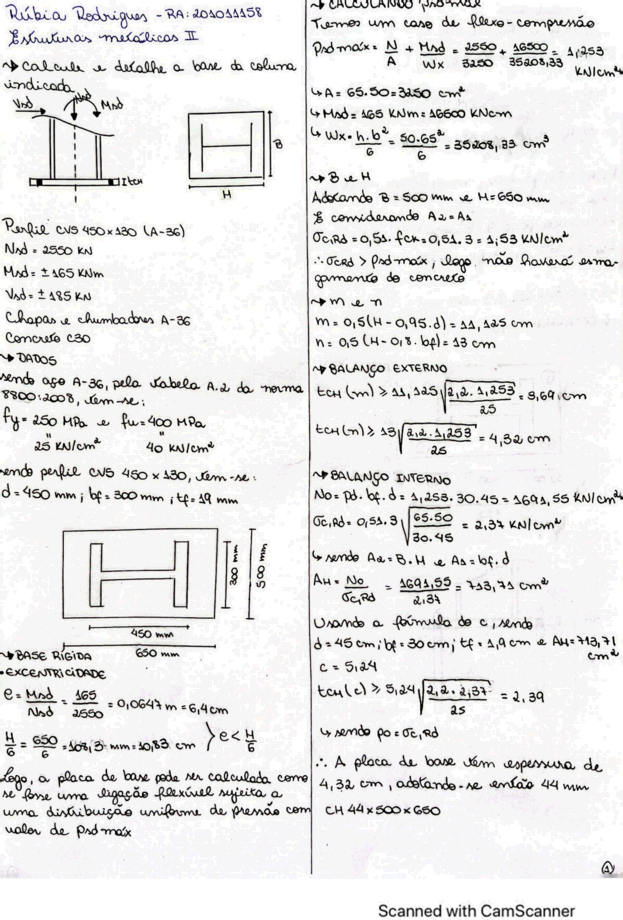 Rúbia Rodrigues - RA: 201011158
Estruturas metálicas II
↝ Calcule e detalhe a base da coluna
indicada
Vsd Nsd Msd
ItCH
B
H
Perfil CVS 450x130 (A-36)
Nsd = 2550 KN
Msd = ± 165 KNm
Vsd = ± 185 KN
Chapas e chumbadores A-36
Concreto C30
↝ DADOS
sendo aço A-36, pela tabela A.2 da norma
8800:2008, tem-se:
fy = 250 MPa e fu = 400 MPa
" "
25 KN/cm² 40 KN/cm²
sendo perfil CVS 450 x 130, tem-se:
d = 450 mm ; bf = 300 mm ; tf = 19 mm
300 mm
500 mm
450 mm
650 mm
↝ BASE RÍGIDA
• EXCENTRICIDADE
e = Msd/Nsd = 165/2550 = 0,0647 m = 6,4 cm
H/6 = 650/6 = 108,3 mm = 10,83 cm } e < H/6
Logo, a placa de base pode ser calculada como
se fosse uma ligação flexível sujeita a
uma distribuição uniforme de pressão com
valor de Psd máx
↝ CALCULANDO Psd máx
Temos um caso de flexo-compressão
Psd máx = N/A + Msd/Wx = 2550/3250 + 16500/35208,33 = 1,253
KN/cm²
↳ A = 65.50 = 3250 cm²
↳ Msd = 165 KNm = 16500 KNcm
↳ Wx = h.b²/6 = 50.65²/6 = 35208,33 cm³
↝ B e H
Adotando B = 500 mm e H = 650 mm
E considerando A2 = A1
σc,Rd = 0,51. fck = 0,51. 3 = 1,53 KN/cm²
∴ σcRd > Psd máx, logo, não haverá esma-
gamento do concreto
↝ m e n
m = 0,5(H - 0,95.d) = 11,125 cm
n = 0,5 (H - 0,8. bf) = 13 cm
↝ BALANÇO EXTERNO
tCH (m) ≥ 11,125 √(2,2. 1,253/25) = 3,69 cm
tCH (n) ≥ 13 √(2,2. 1,253/25) = 4,32 cm
↝ BALANÇO INTERNO
No = Pd. bf. d = 1,253. 30. 45 = 1691,55 KN/cm²
σc,Rd = 0,51. 3 √(65.50/30.45) = 2,37 KN/cm²
↳ sendo A2 = B.H e A1 = bf. d
AH = No/σc,Rd = 1691,55/2,37 = 713,71 cm²
Usando a fórmula do c, sendo
d = 45 cm ; bf = 30 cm ; tf = 1,9 cm e AH = 713,71
cm²
c = 5,24
tCH (c) ≥ 5,24 √(2,2. 2,37/25) = 2,39
↳ sendo po = σc,Rd
∴ A placa de base tem espessura de
4,32 cm, adotando-se então 44 mm
CH 44 x 500 x 650
1
Scanned with CamScanner